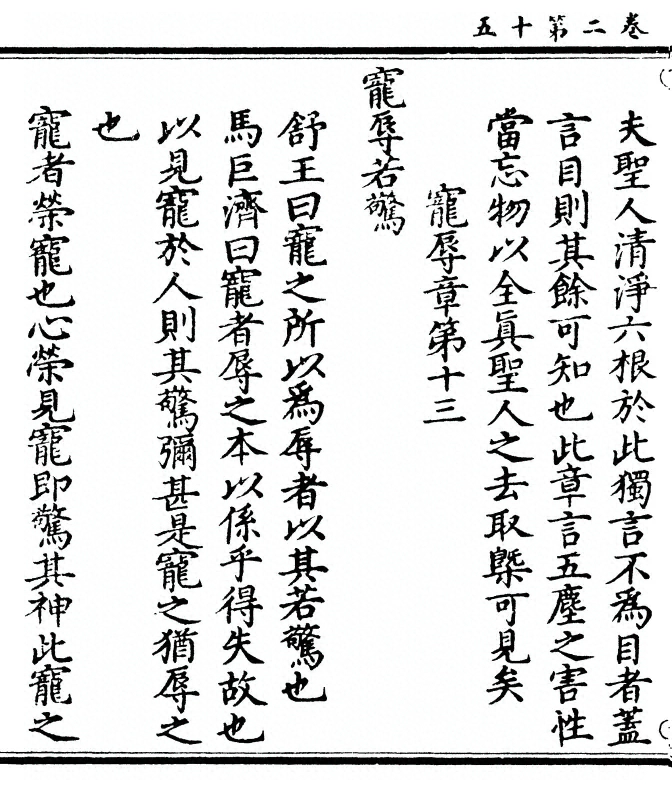 卷二第十五
夫聖人清淨六根於此獨言不爲目者蓋
言目則其餘可知也此章言五塵之害性
當忘物以全眞聖人之去取槩可見矣
寵辱章第十三
寵辱若驚
舒王曰寵之所以爲辱者以其若驚也
馬巨濟曰寵者辱之本以係乎得失故也
以見寵於人則其驚彌甚是寵之猶辱之
也
寵者榮寵也心榮見寵即驚其神此寵之